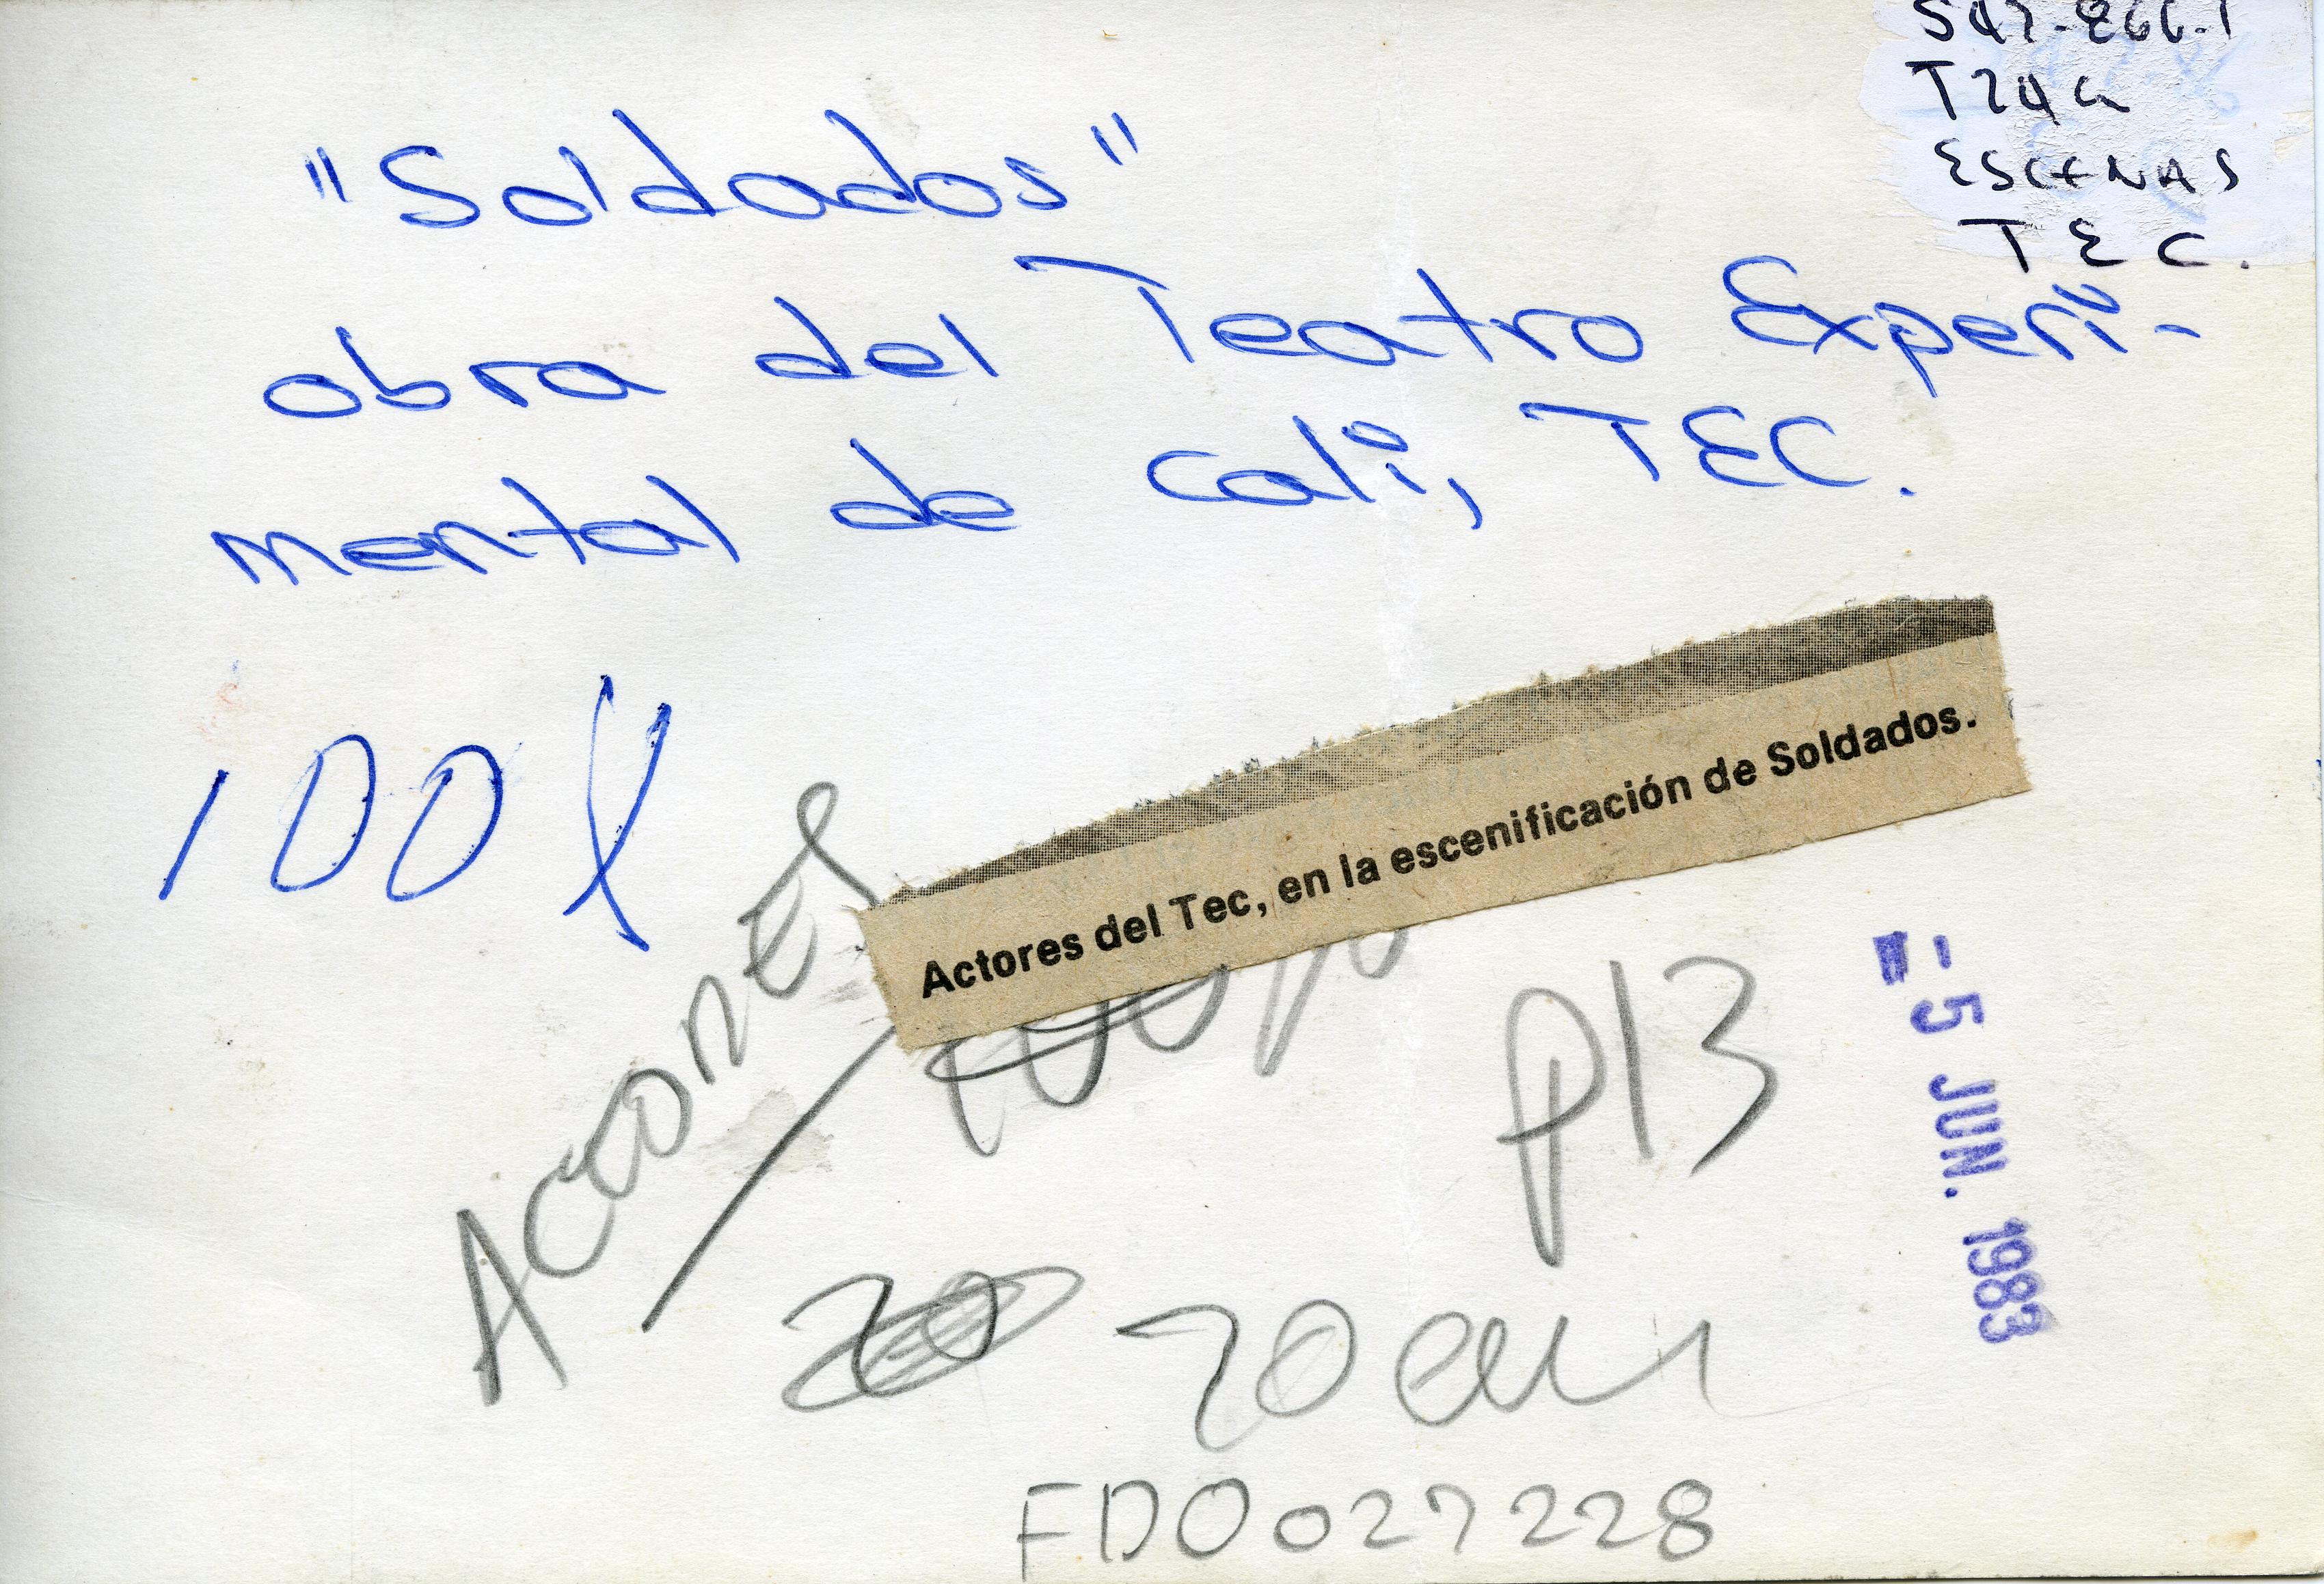 T24a
ESCENAS
TEC.
"Soldados"
obra del Teatro Experi-
mental de Cali, TEC.
100
Actores del Tec, en la escenificación de Soldados.
p13
5 JUN. 1983
20
20 cm
FD0027228